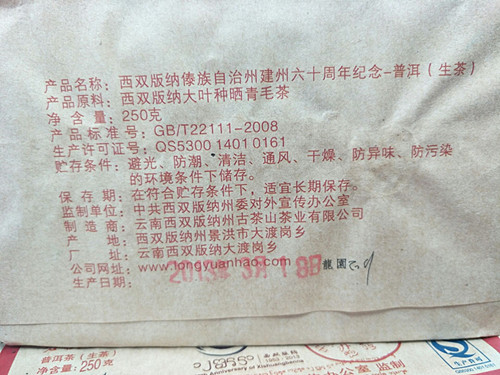 产品名称：西双版纳傣族自治州建州六十周年纪念-普洱（生茶）
产品原料：西双版纳大叶种晒青毛茶
净 含 量：250克
产品标准号：GB/T22111-2008
生产许可证号：QS5300 1401 0161
贮存条件：避光、防潮、清洁、通风、干燥、防异味、防污染
的环境条件下储存。
保 存 期：在符合贮存条件下，适宜长期保存。
监制单位：中共西双版纳州委对外宣传办公室
制 造 商：云南西双版纳州古茶山茶业有限公司
产 地：西双版纳州景洪市大渡岗乡
厂 址：云南西双版纳大渡岗乡
公司网址：www.longyuanhao.com
生产日期：
2013年3月18日
龍園
普洱茶（生茶）
净含量：250克
1953 / 2013
Anniversary of Xishuangbanna
监 制